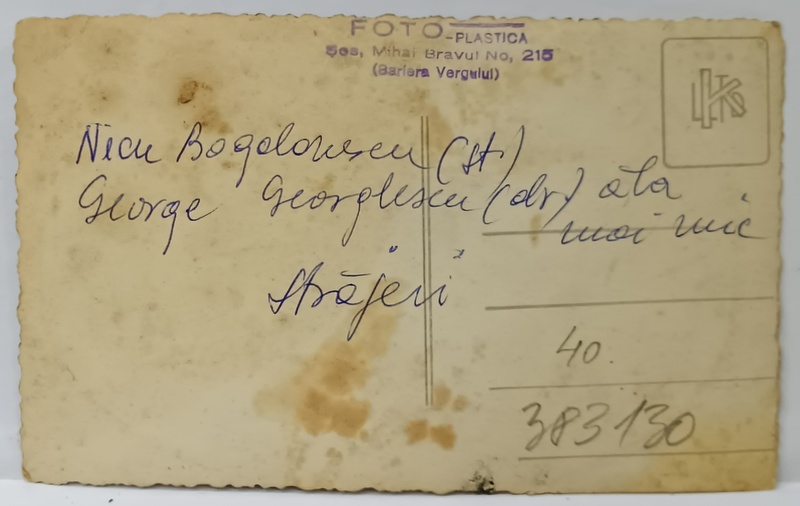 FOTO-PLASTICA
Sos, Mihai Bravul No, 215
(Bariera Vergului)
Nicu Bogdonescu (st)
George Georglescu (dr) ăla
mai mic
"străjeri"
40.
383130